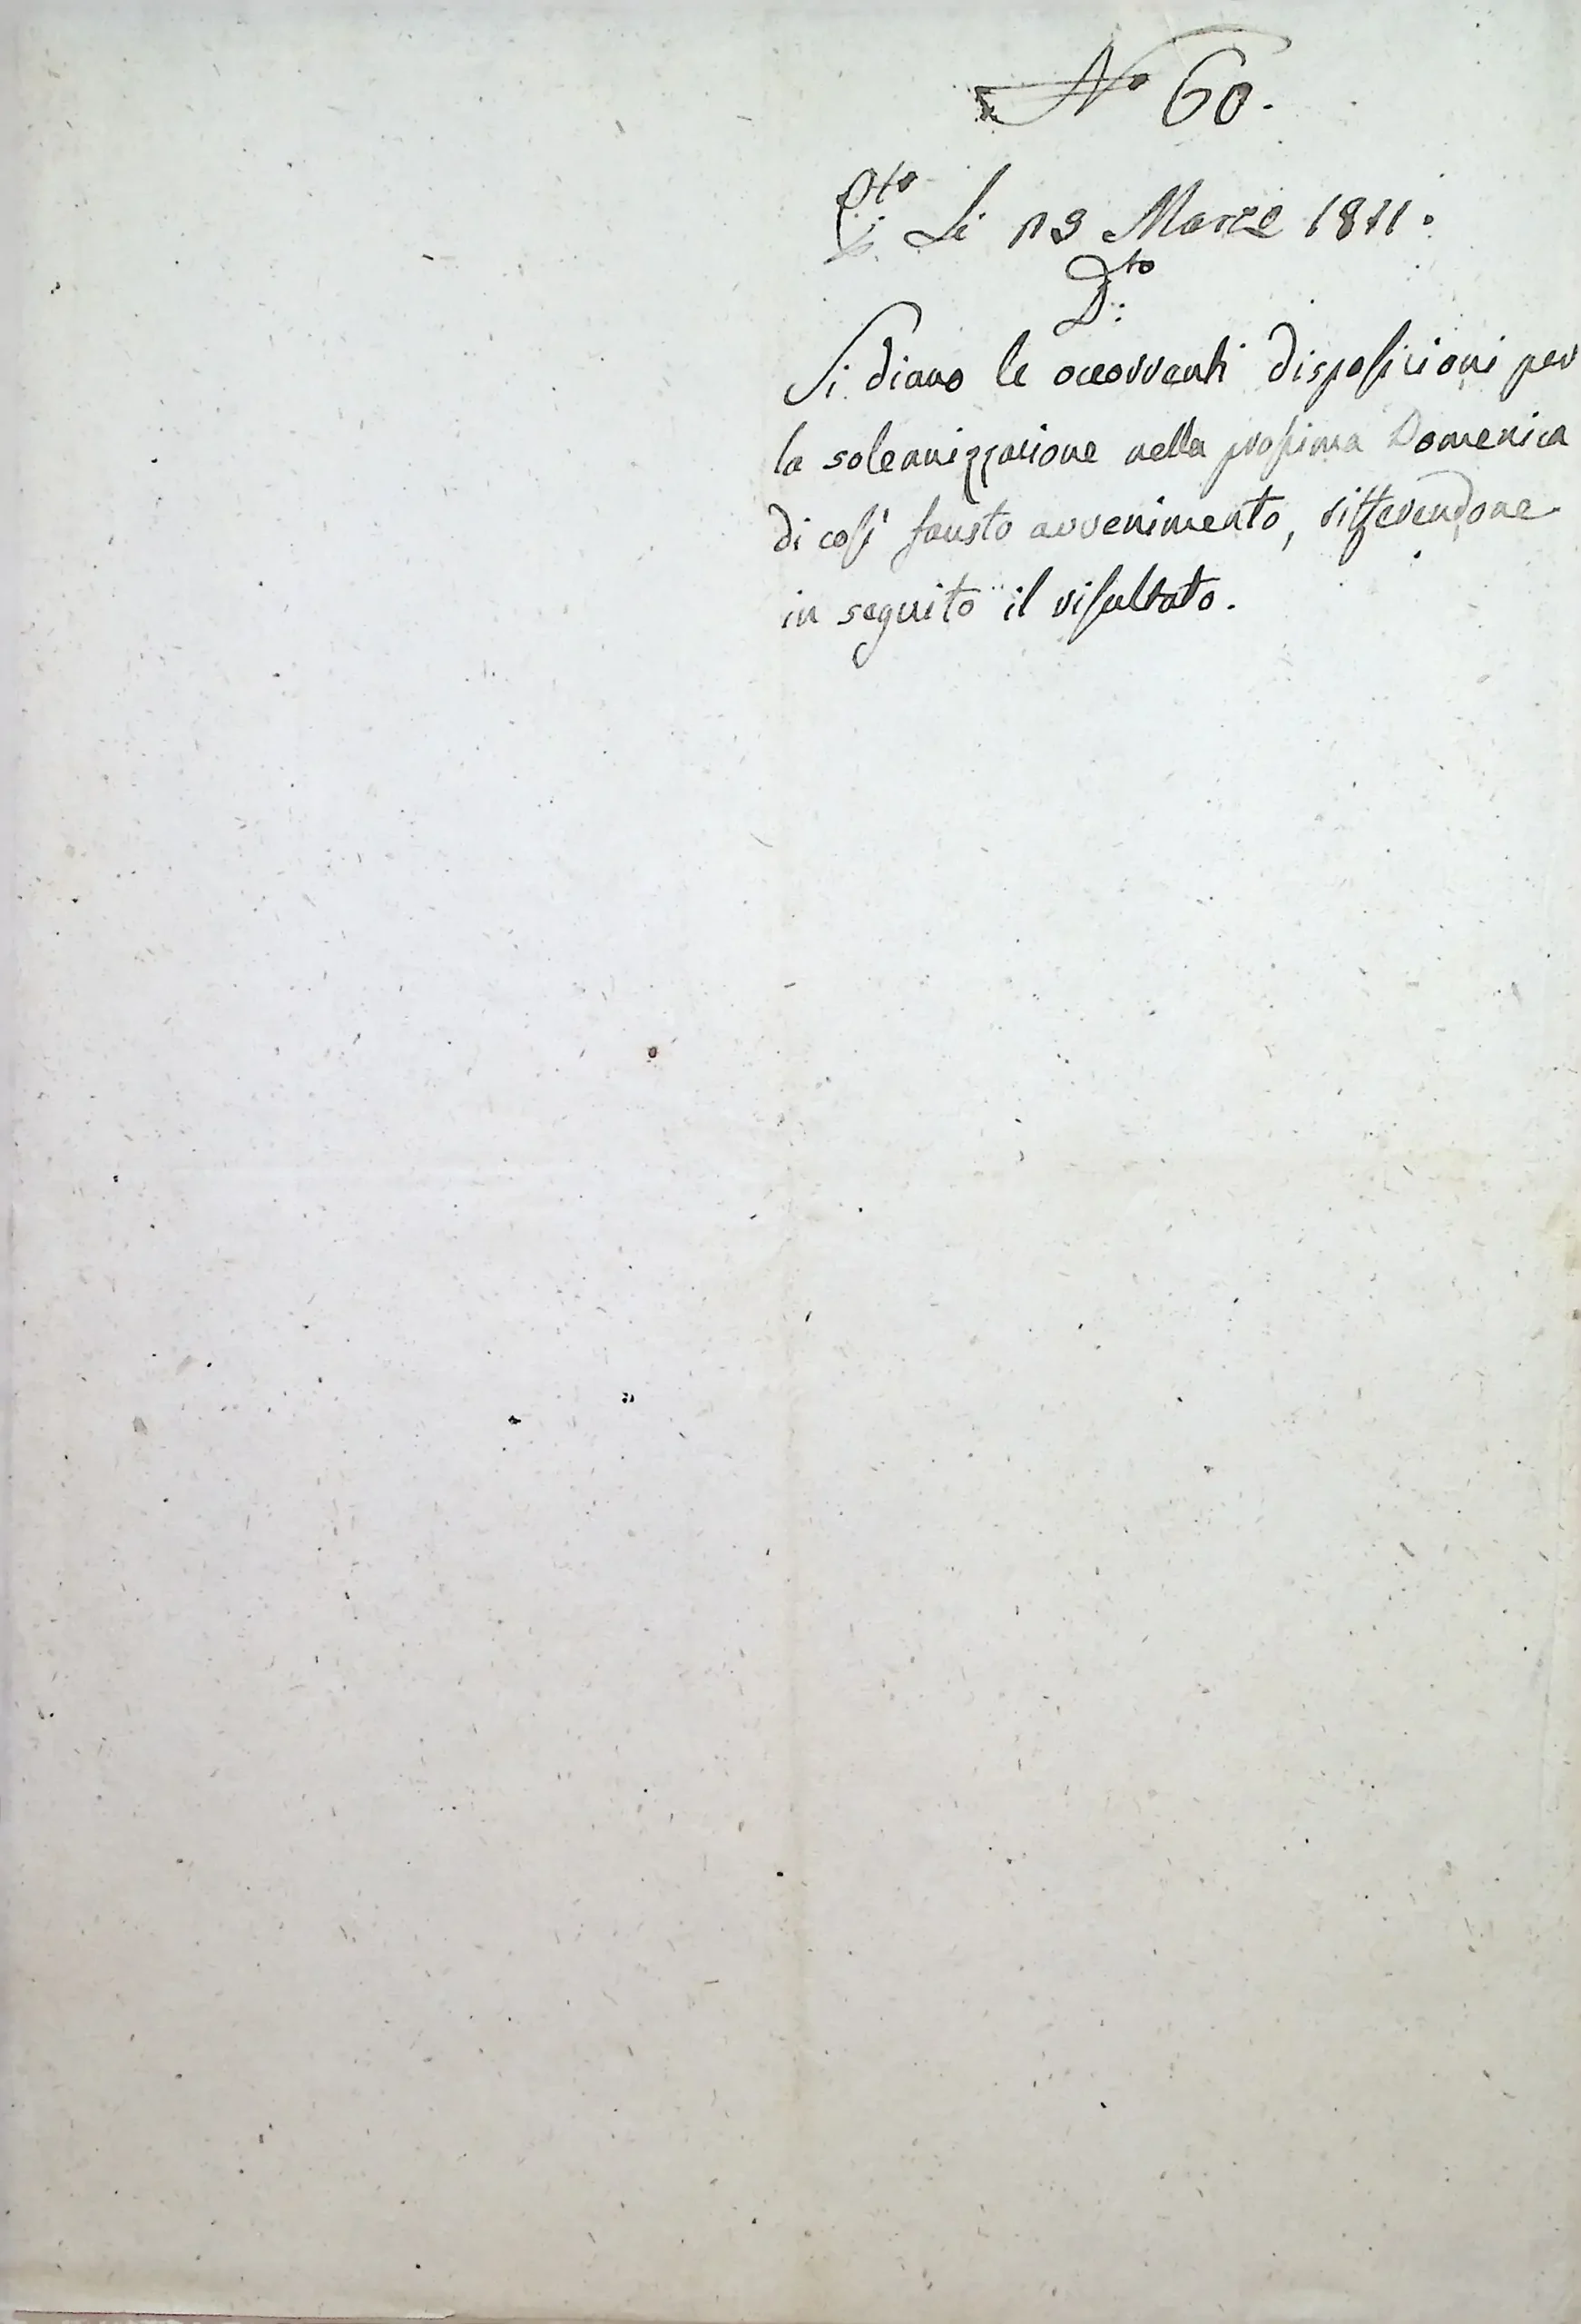 N° 60.
P.to Li 29 Marzo 1811.
D.to
Si diano le occorrenti disposizioni per
la solennizzazione nella prossima Domenica
di così fausto avvenimento, rifferendone
in seguito il risultato.